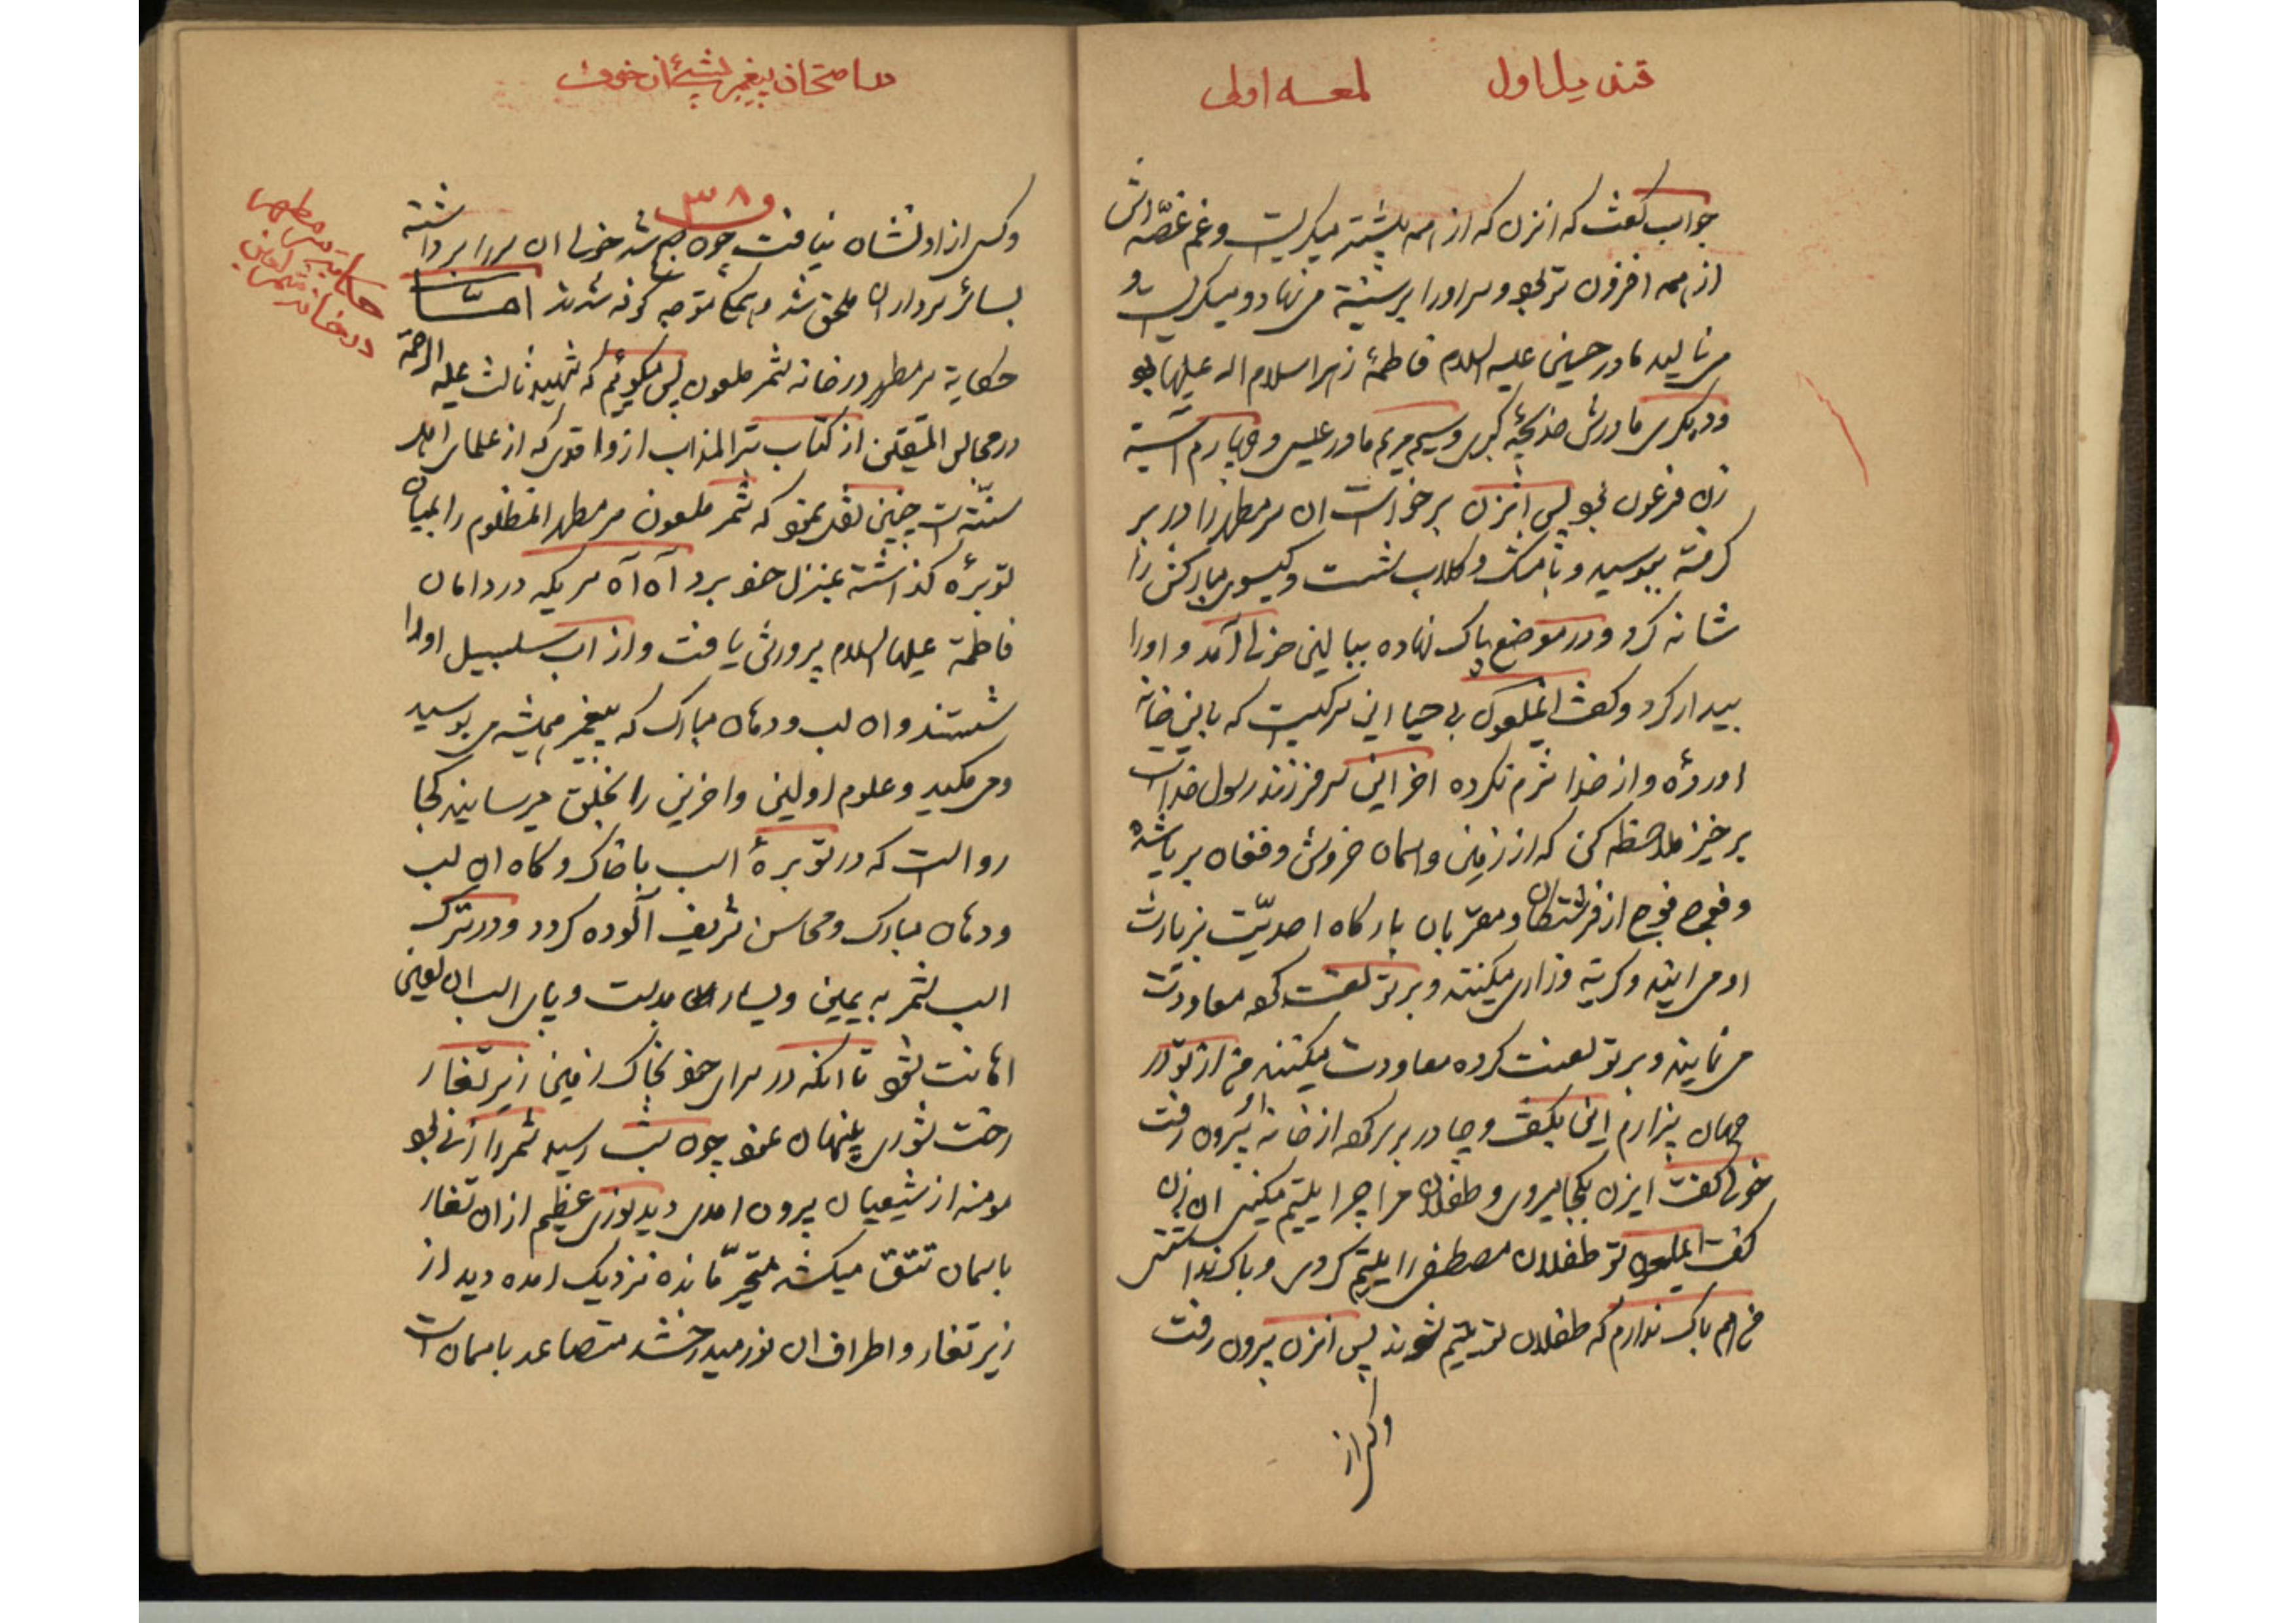 قندیل اول لمعه اولی
جواب گفت که انزن که از همه پیشتر میگریست و غم غصه اش
از همه افزون تر بود و سر اورا بر سینه می نهاد و میگریست و
می نالید مادر حسین علیه السلام فاطمهٔ زهرا سلام اله علیها بود
ودیگری مادرش خدیجهٔ کبری و سیم مریم مادر عیسی و چهارم آسیة
زن فرعون بود پس انزن برخواست ان سر مطهر را در بر
گرفته ببوسید و با مشک و گلاب بشست و گیسوی مبارکش را
شانه کرد و در موضع پاک نهاده ببالین خولی آمد و اورا
بیدار کرد و گفت ایملعون بی حیا این سر کیست که باین خانه
اوردهٔ و از خدا شرم نکرده اخر این سر فرزند رسول خداست
بر خیز ملاحظه کن که از زمین و اسمان خروش و فغان بر پا شده
و فوج فوج از فرشتگان و مقربان بارگاه احدیّت بزیارت
او می ایند و گریه و زاری میکنند و بر تو لعنت کرده معاودت
می نمایند و بر تو لعنت کرده معاودت میکنند من از تو در
جهان بیزارم این بگفت و چادر بر سر کرد از خانه بیرون رفت
خولی گفت ایزن بکجا میروی و طفلان مرا چرا یتیم میکنی ان زن
گفت ایملعون تو طفلان مصطفی را یتیم کردی و باک نداشتی
من هم باک ندارم که طفلان تو یتیم شوند پس انزن بیرون رفت
وکسی از
در امتحان پیغمبر
۳۸
وکسی از او نشان نیافت چون صبح شد خولی ان سر را برداشته
بسائر سرداران ملحق شد و همگی متوجه کوفه شدند امّا
حکایة سر مطهر در خانه شمر ملعون پس میگوئیم که شهید ثالث علیه الرحمة
در مجالس المتقین از کتاب تبر المذاب از واقدی که از علمای اهل
سنّت است چنین نقل نمود که شمر ملعون سر مطهر انمظلوم را بمیان
توبرهٔ گذاشته بمنزل خود برد آه آه سریکه در دامان
فاطمة علیها السلام پرورش یافت و از آب سلسبیل اورا
شستند و ان لب و دهان مبارک که پیغمبر همیشه می بوسید
ومی مکید و علوم اولین و اخرین را بخلق میرسانید کجا
رواست که در توبرهٔ اسب با خاک و کاه ان لب
ودهان مبارک و محاسن شریف آلوده گردد و در ترک
اسب شمر به یمین و یسار بدست و پای اسب ان لعین
اهانت شود تا انکه در سرای خود بخاک زمین زیر تغار
رخت شوری پنهان نمود چون شب رسید شمر را زنی بود
مومنه از شیعیان بیرون امدی دید نوری عظیم از ان تغار
باسمان تتق میکشد متحیّر مانده نزدیک امده دید از
زیر تغار و اطراف ان نور میدرخشد متصاعد باسمان است
حکایت سر مطهر
در خانه شمر لعین